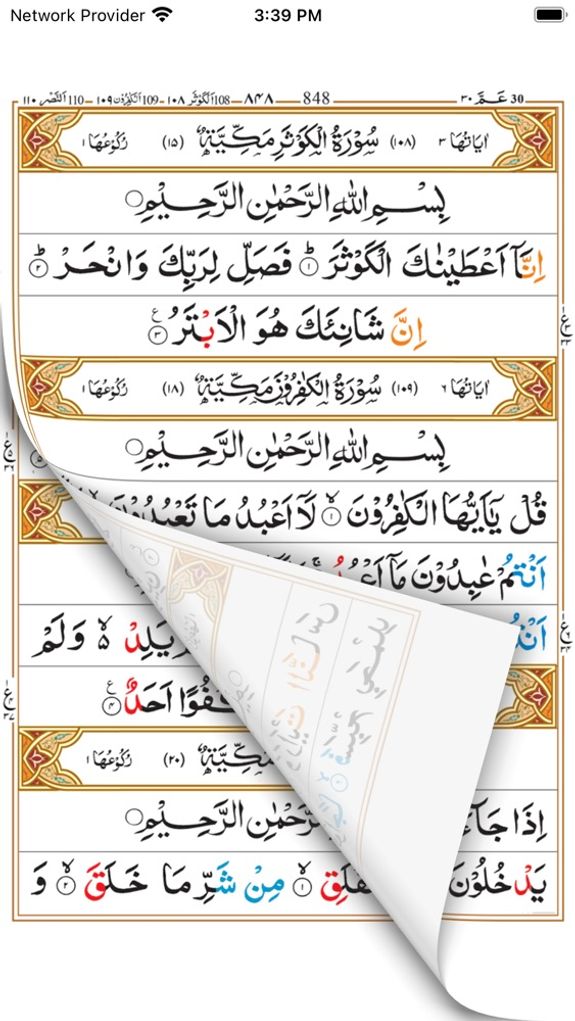 Network Provider 3:39 PM
110 النصر ١١٠ — 109 الكٰفرون ١٠٩ — 108 الكوثر ١٠٨ — ٨٤٨ — 848 — عَمَّ ٣٠ 30
اٰيَاتُهَا ٣ (١٠٨) سُوْرَةُ الْكَوْثَرِ مَكِّيَّةٌ (١٥) رُكُوْعُهَا ١
بِسْمِ اللهِ الرَّحْمٰنِ الرَّحِيْمِ
اِنَّآ اَعْطَيْنٰكَ الْكَوْثَرَ ؕ ١ فَصَلِّ لِرَبِّكَ وَانْحَرْ ؕ ٢
اِنَّ شَانِئَكَ هُوَ الْاَبْتَرُ ٣ ع
اٰيَاتُهَا ٦ (١٠٩) سُوْرَةُ الْكٰفِرُوْنَ مَكِّيَّةٌ (١٨) رُكُوْعُهَا ١
بِسْمِ اللهِ الرَّحْمٰنِ الرَّحِيْمِ
قُلْ يٰٓاَيُّهَا الْكٰفِرُوْنَ ۙ ١ لَآ اَعْبُدُ مَا تَعْبُدُوْنَ
اَنْتُمْ عٰبِدُوْنَ مَآ اَعْبُدُ
يَلِدْ ۙ۬ وَلَمْ
كُفُوًا اَحَدٌ ٤ ع
مَكِّيَّةٌ (٢٠) رُكُوْعُهَا ١
اِذَا جَآءَ الرَّحْمٰنِ الرَّحِيْمِ
يَدْخُلُوْنَ الْفَلَقِ ۙ ١ مِنْ شَرِّ مَا خَلَقَ ۙ ٢ وَ